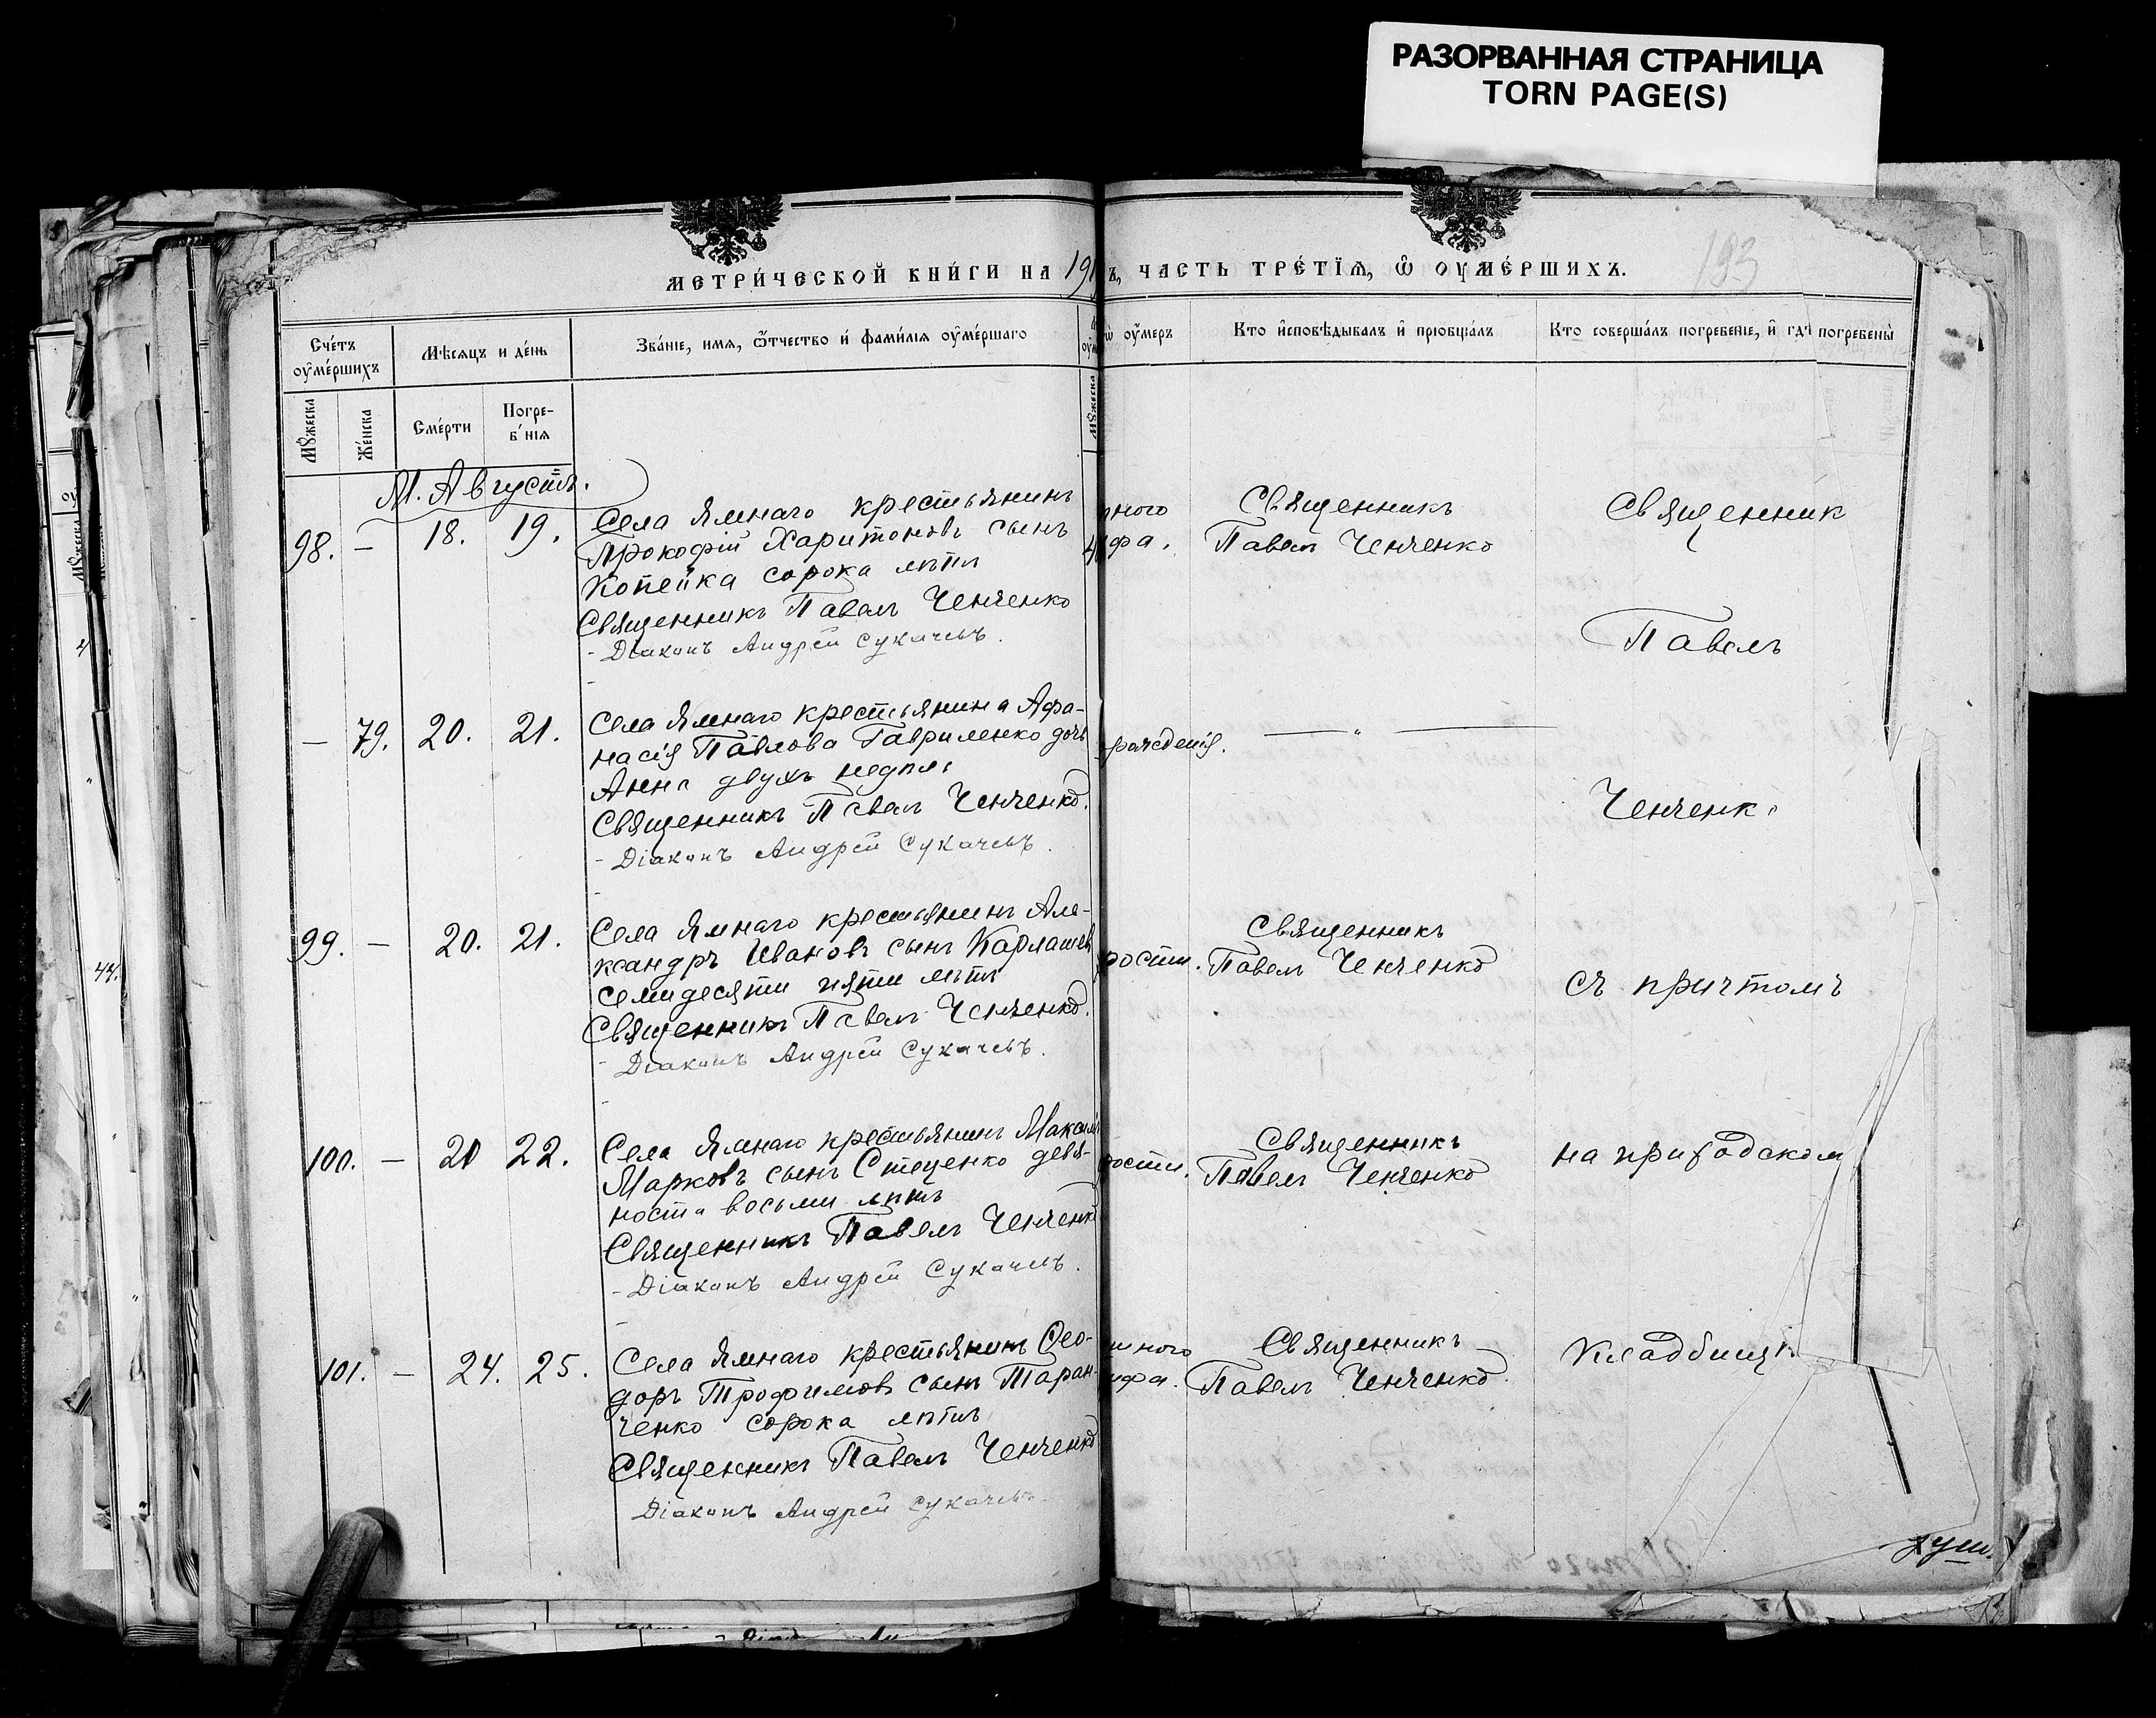 РАЗОРВАННАЯ СТРАНИЦА
TORN PAGE(S)
МЕТРИ́ЧЕСКОЙ КНИ́ГИ НА 191
Ъ, ЧАСТЬ ТРЕ́ТІѦ, Ѡ҆ ОУ҆МЕ́РШИХЪ.
193
Сче́тъ оу҆ме́ршихъ
Мѣсяцъ и де́нь
Зва́ніе, имя, ѻ҆́тчество и҆ фами́лія оу҆ме́ршаго
оу҆меръ
Кто и҆сповѣ́дывалъ и҆ прїобща́лъ
Кто соверша́лъ погребеніе, и҆ гдѣ погребены̀
Мꙋжеска
Же́нска
Сме́рти
Погребе́нія
Мꙋжеска
М. Августъ.
98. — 18. 19.
Села Ямнаго крестьянинъ
Прокофій Харитоновъ сынъ
Копейка сорока лѣтъ
Священникъ Павелъ Ченченко
- Діаконъ Андрей Сукачевъ.
ифа.
Священникъ
Павелъ Ченченко
Священник
Павелъ
— 79. 20. 21.
Села Ямнаго крестьянина Афа-
насія Павлова Гавриленко дочь
Анна двухъ недѣль
Священникъ Павелъ Ченченко.
- Діаконъ Андрей Сукачевъ.
рожденія.
— „ —
Ченченк
99. — 20. 21.
Села Ямнаго крестьянинъ Але-
ксандръ Ивановъ сынъ Карлашев
семидесяти пяти лѣтъ
Священникъ Павелъ Ченченко.
- Діаконъ Андрей Сукачевъ.
рости.
Священникъ
Павелъ Ченченко
съ причтомъ
100. — 20 22.
Села Ямнаго крестьянинъ Максим
Марковъ сынъ Стеценко девя-
носта восьми лѣтъ
Священникъ Павелъ Ченченко
- Діаконъ Андрей Сукачевъ.
рости.
Священникъ
Павелъ Ченченко
на приходском
101. — 24. 25.
Села Ямнаго крестьянинъ Ѳео-
доръ Трофимовъ сынъ Таран-
ченко сорока лѣтъ
Священникъ Павелъ Ченченко
Діаконъ Андрей Сукачевъ.
шного
ифа.
Священникъ
Павелъ Ченченко.
Кладбищѣ
душ.
44.